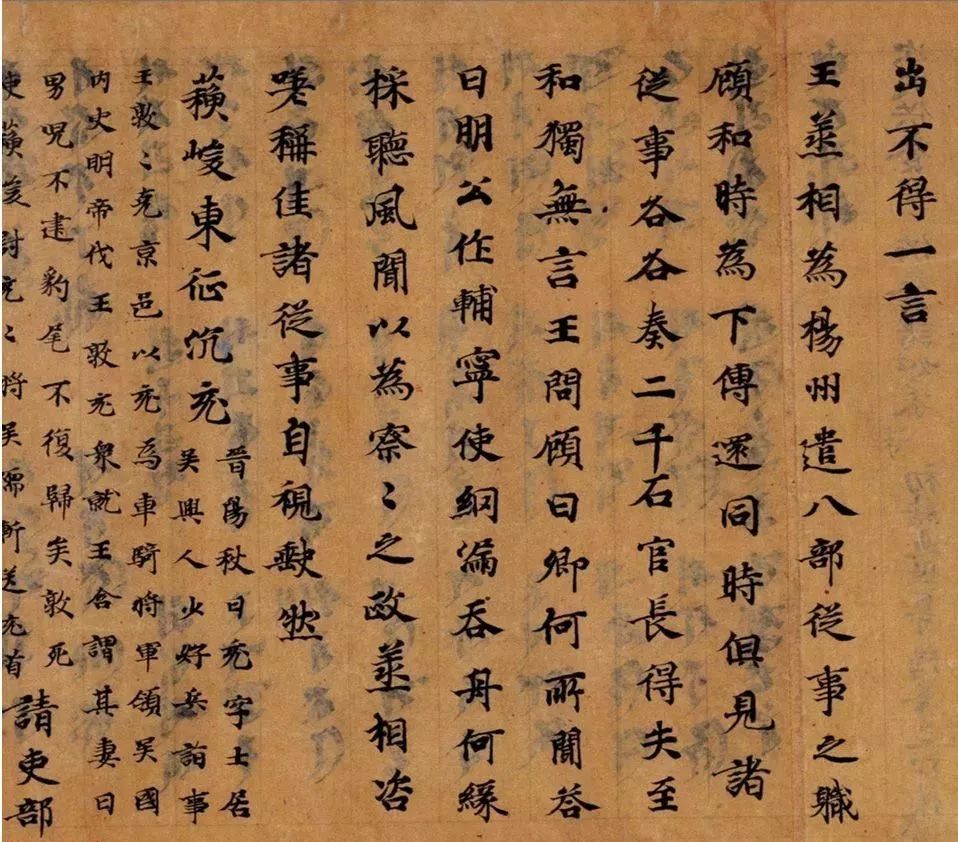 出不得一言
王丞相為楊州遣八部從事之職
顧和時為下傳還同時俱見諸
從事各各奏二千石官長得失至
和獨無言王問顧曰卿何所聞荅
曰明公作輔寧使網漏吞舟何緣
採聽風聞以為察〻之政丞相咨
嗟稱佳諸從事自視缺然
蘓峻東征沉充
晉陽秋曰充字士居
吳興人少好兵諂事
王敦〻克京邑以充為車騎將軍領吳國
内史明帝伐王敦充衆就王含謂其妻曰
男兒不建豹尾不復歸矣敦死
使蘓峻討充〻將吳儒斬送充首請吏部